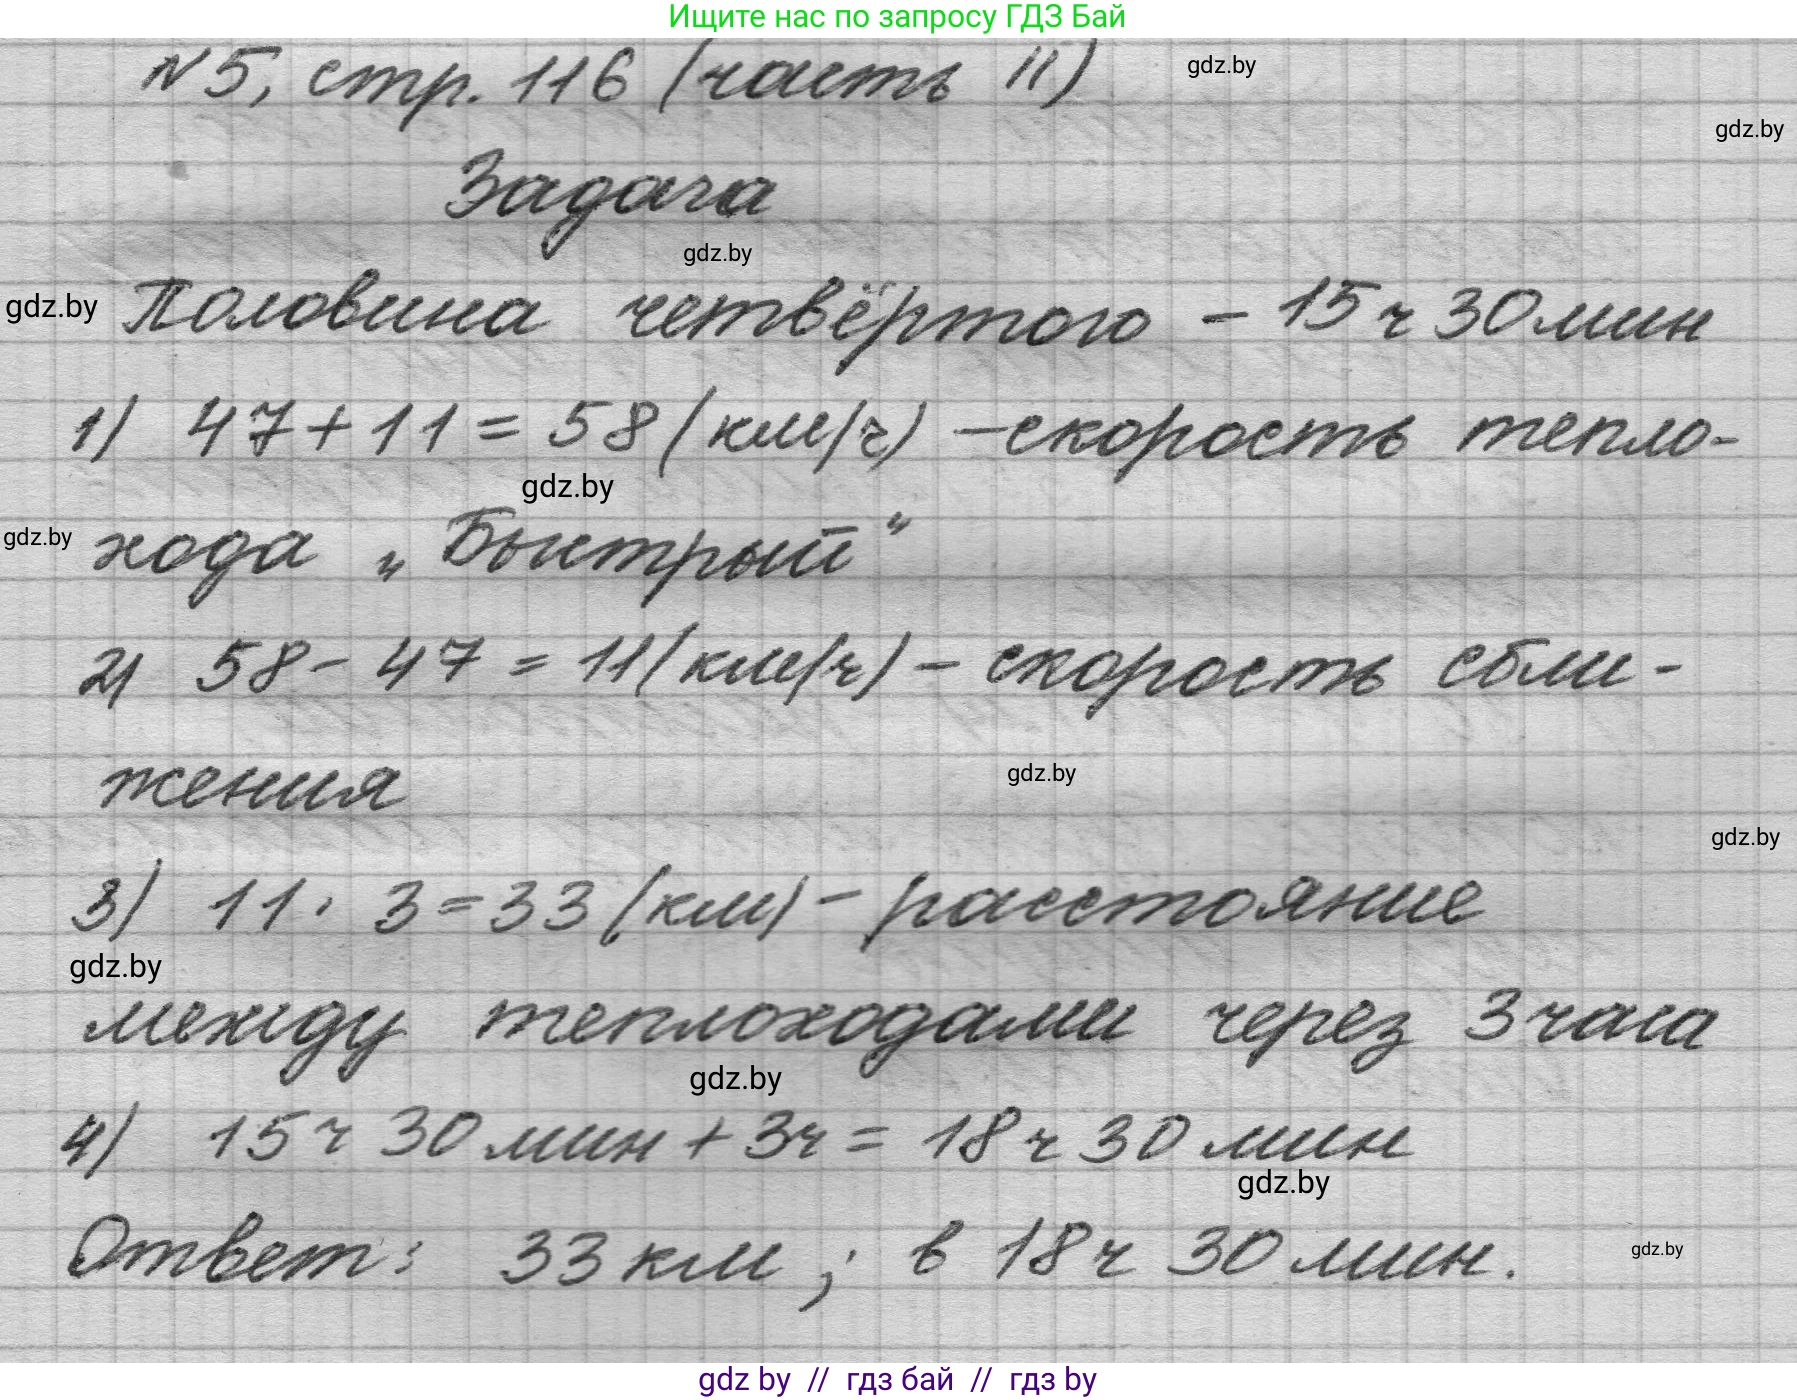 Ищите нас по запросу ГДЗ Бай
№5, стр. 116 (часть II)
gdz.by
gdz.by
Задача
gdz.by
gdz.by
Половина четвёртого – 15 ч 30 мин
1) 47 + 11 = 58 (км/ч) – скорость тепло-
gdz.by
gdz.by
хода „Быстрый“
2) 58 – 47 = 11 (км/ч) – скорость сбли-
жения
gdz.by
gdz.by
3) 11 · 3 = 33 (км) – расстояние
gdz.by
между теплоходами через 3 часа
gdz.by
4) 15 ч 30 мин + 3 ч = 18 ч 30 мин
gdz.by
Ответ: 33 км; в 18 ч 30 мин.
gdz.by
gdz by // гдз бай // гдз by